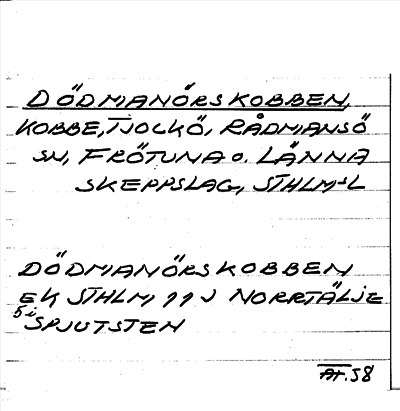 DÖDMANÖRSKOBBEN,
KOBBE, TJOCKÖ, RÅDMANSÖ
SN, FRÖTUNA O. LÄNNA
SKEPPSLAG, STHLM-L
DÖDMANÖRSKOBBEN
EK STHLM 11 J NORRTÄLJE
5i SPJUTSTEN
AT. 58